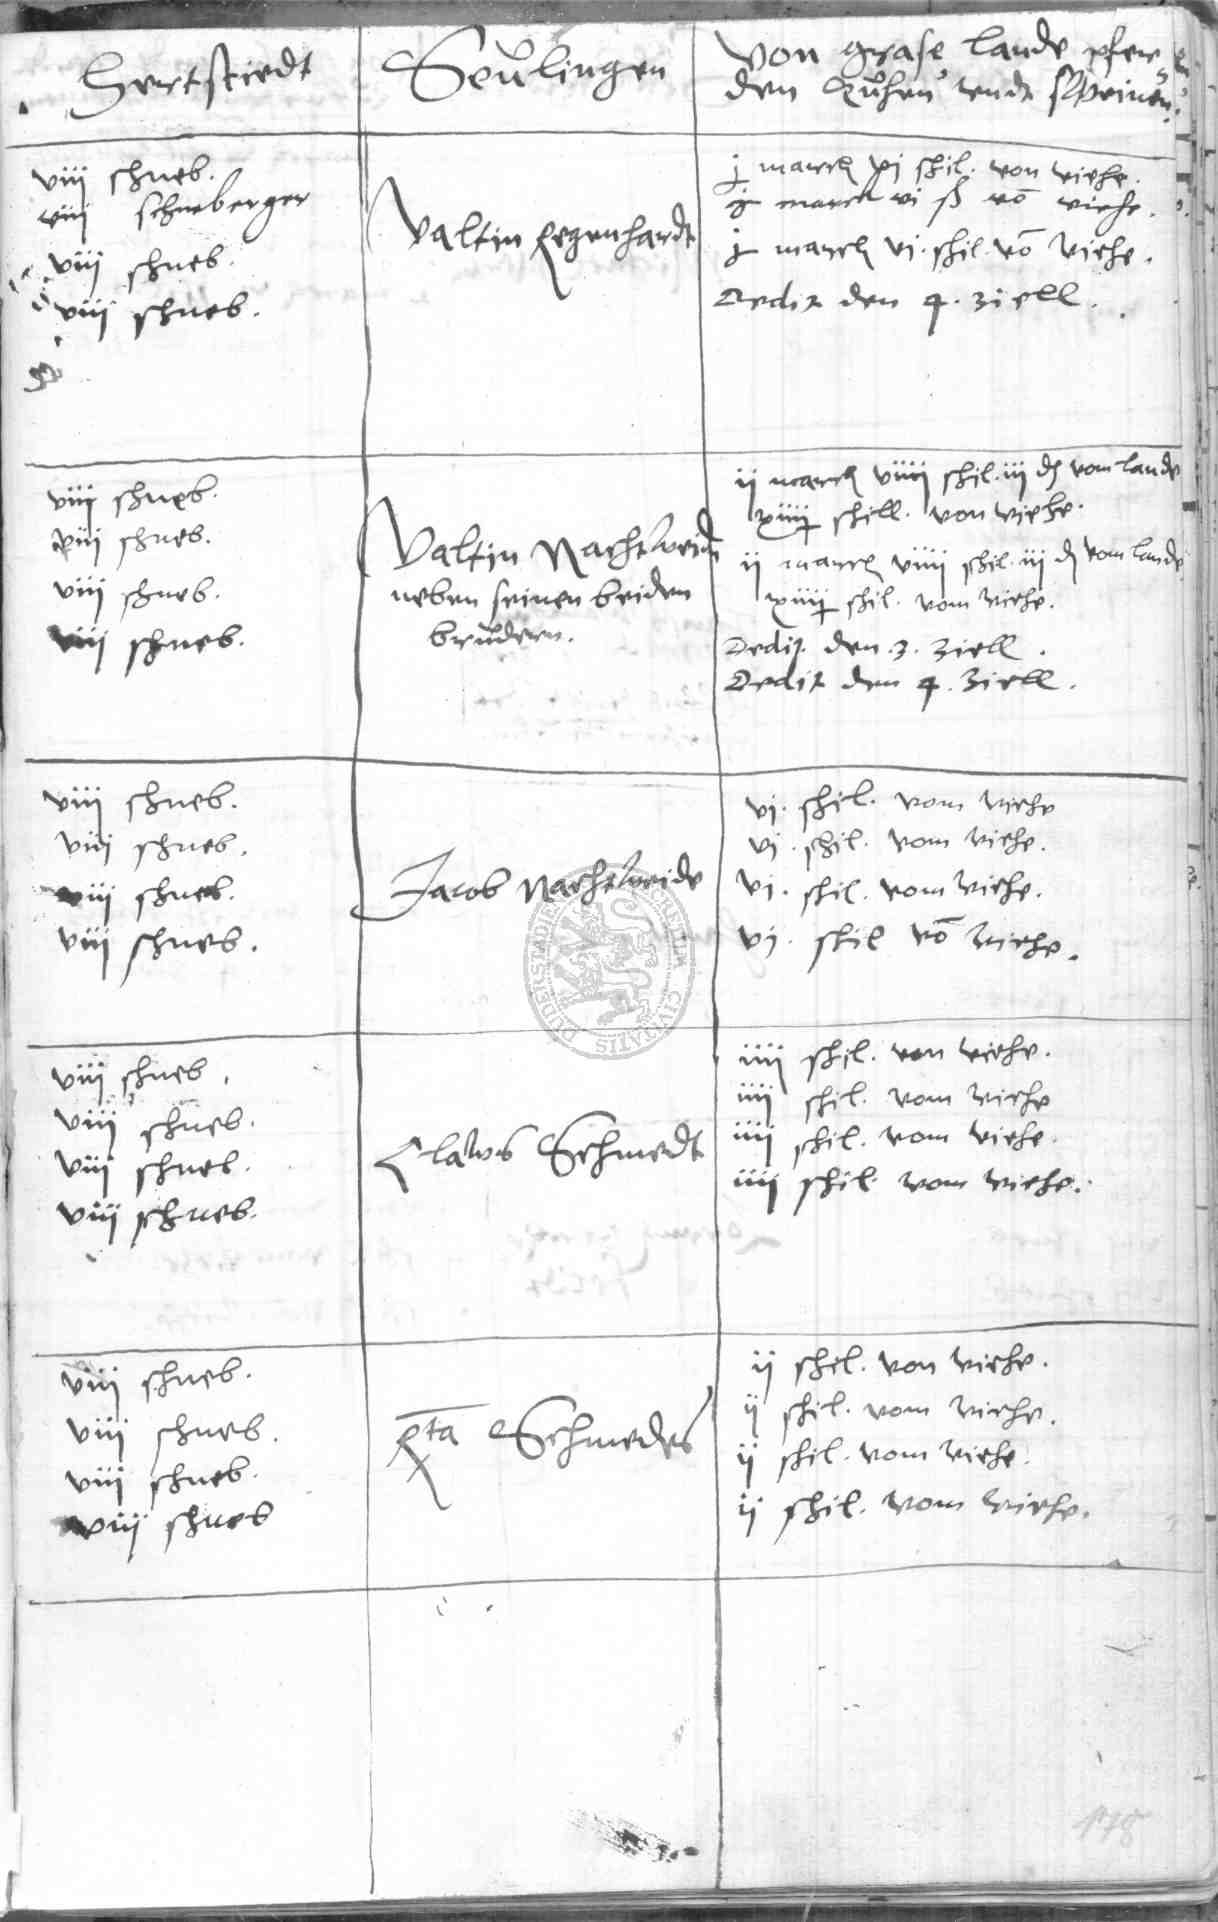 Hertstiedt
Seulingen
Von grase lande pfer
den kuhen undt schweinen
viii schneb.
viii schneberger
viii schneb.
viii schneb.
Valtin Regenhardt
j marck vj schil. von viehe.
j marck vi ß vō viehe.
j marck vj. schil. vō viehe.
Dedit den 4. ziell.
viii schneb.
viii schneb.
viii schneb.
viii schneb.
Valtin Nachtweide
neben seinen beiden
brudern.
ij marck viiij schil. iij d vom lande
xiiij schill. von viehe.
ij marck viiij schil. iij d vom lande
xiiij schil. vom viehe.
Dedit den .3. ziell.
Dedit den 4. ziell.
viii schneb.
viii schneb.
viii schneb.
viii schneb.
Jacob Nachtweide
vj. schil. vom viehe
vj. schil. vom viehe.
vj. schil. vom viehe.
vj. schil vō viehe.
viii schneb.
viii schneb.
viii schneb.
viii schneb.
Clawes Schmedt
iiij schil. von viehe.
iiij schil. vom viehe
iiij schil. vom viehe.
iiij schil. vom viehe.
viii schneb.
viii schneb.
viii schneb.
viii schneb
Schmedes
ij schil. von viehe.
ij schil. vom viehe.
ij schil. vom viehe.
ij schil. vom viehe.
178